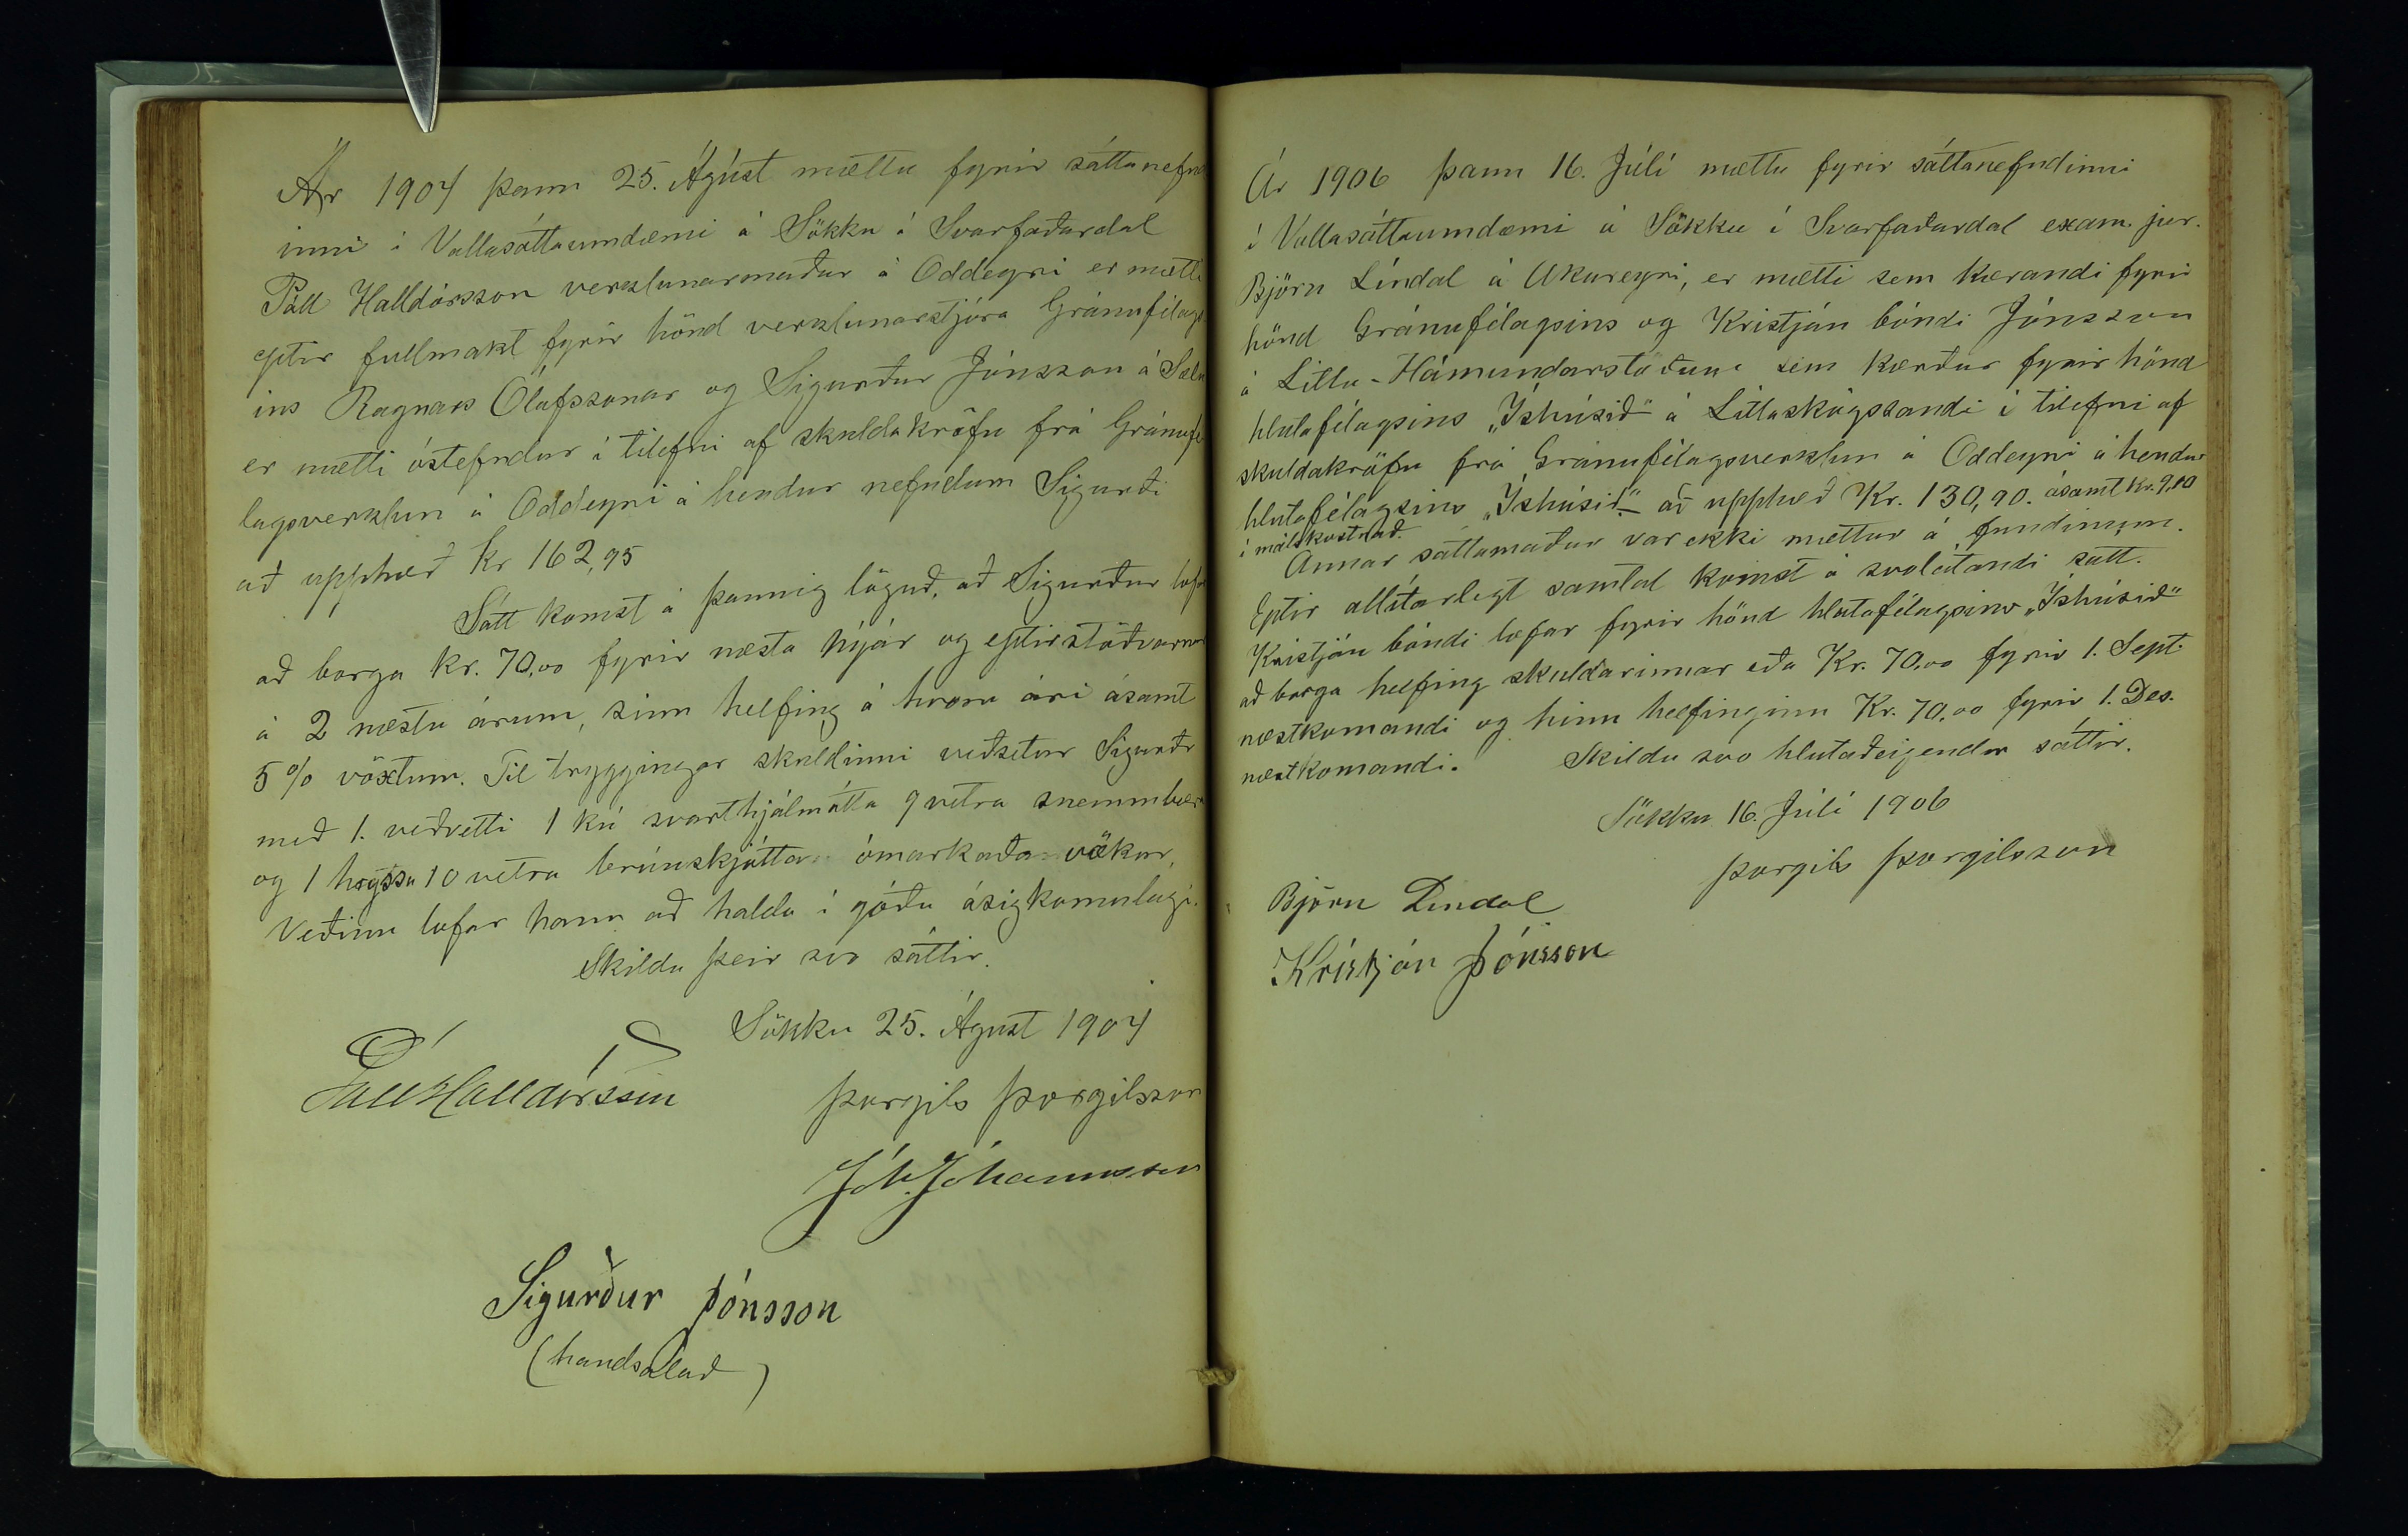 Ár 1904 þann 25. Ágúst mættu fyrir sáttanefnd
inni í Vallasáttaumdæmi á Sökku í Svarfaðardal
Páll Halldórsson verzlunarmaður á Oddeyri er mætti
eptir fullmakt fyrir hönd verzlunarstjóra Gránufélags
ins Ragnars Ólafssonar og Sigurður Jónsson á
er mætti óstefndur í tilefni af skuldakröfu frá Gránufé
lagsverzlun á Oddeyri á hendur nefndum Sigurði
að upphæð kr 162,95
Sátt komst á þannig löguð, að Sigurður lofar
að borga kr. 70,00 fyrir næsta nýjár og eptirstöðvarnar
á 2 næstu árum, sinn helfing á hvoru ári ásamt
5% vöxtum. Til tryggingar skuldinni veðsetur Sigurðr
með 1. veðrétti 1 kú svarthjálmótta 9 vetra snemmbæra
og 1 hryssu 10 vetra brúnskjótta ómarkaða vakur.
Veðinu lofar hann að halda í góðu ásigkomulagi.
Skildu þeir svo sáttir.
Sökku 25. Ágúst 1904
Páll Halldórsson
Þorgils Þorgilsson
Jóh. Jóhannsson
Sigurður Jónsson
(handsalað)
Ár 1906 þann 16. Júlí mættu fyrir sáttanefndinni
í Vallasáttaumdæmi á Sökku í Svarfaðardal exam. jur.
Björn Líndal á Akureyri, er mætti sem kærandi fyrir
hönd Gránufélagsins og Kristján bóndi Jónsson
á Litlu-Hámundarstöðum sem kærður fyrir hönd
hlutafélagsins „Íshúsið“ á Litlaskógssandi í tilefni af
skuldakröfu frá Gránufélagsverzlun á Oddeyri á hendur
hlutafélagsins „Íshúsið“ að upphæð Kr. 130,90. ásamt kr. 9,10
í málskostnað.
Annar sáttamaður var ekki mættur á fundinum.
Eptir allítarlegt samtal komst á svolátandi sátt.
Kristján bóndi lofar fyrir hönd hlutafélagsins „Íshúsið“
að borga helfing skuldarinnar eða Kr. 70,00 fyrir 1. Sept.
næstkomandi og hinn helfinginn Kr. 70,00 fyrir 1. Des.
næstkomandi. Skildu svo hlutaðeigendur sáttir.
Sökku 16. Júlí 1906
Þorgils Þorgilsson
Björn Líndal
Kristján Jónsson